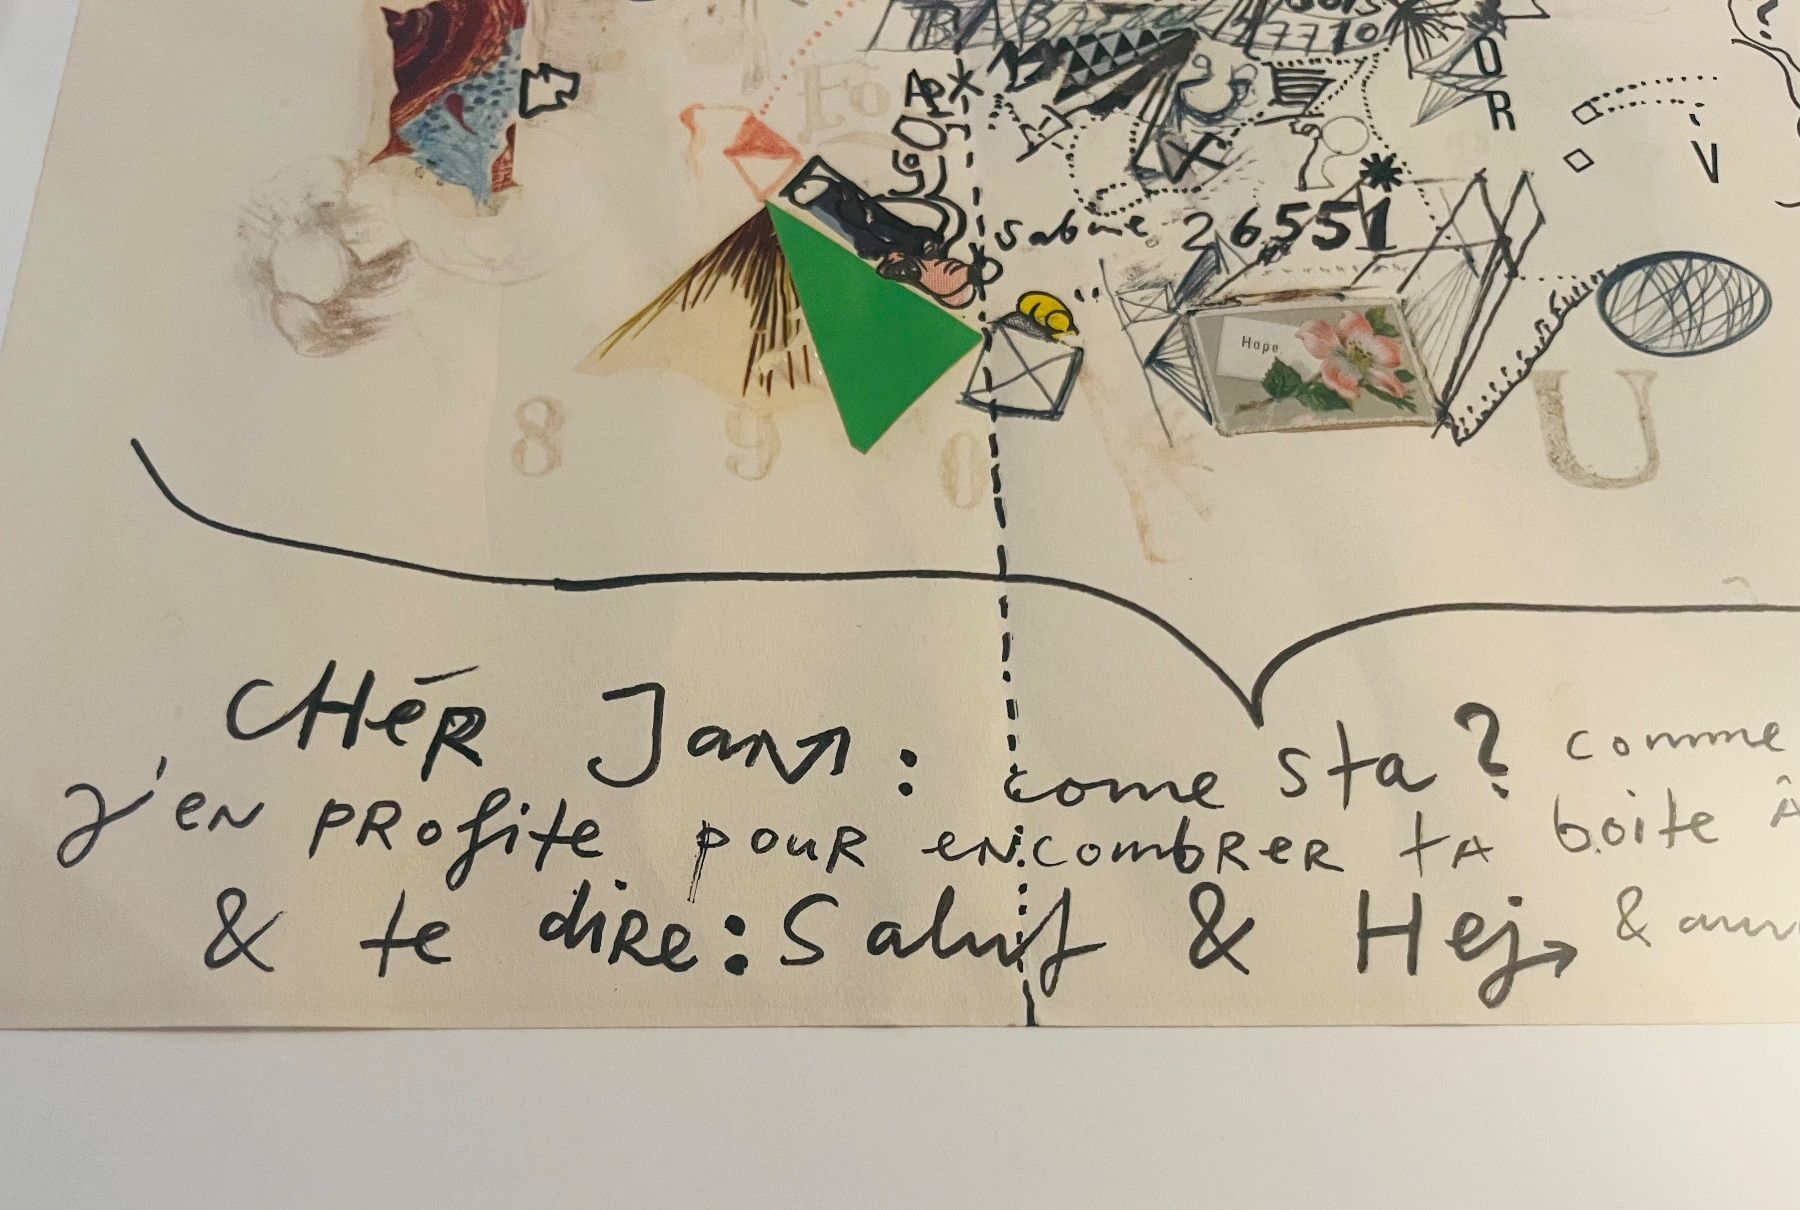 7710
O
R
V
Fo
sabine 26551
Hope.
8 9 0
U
CHéR Jann : come sta ? comme
j'en profite pour encombrer ta boite â
& te dire : Salut & Hej → &